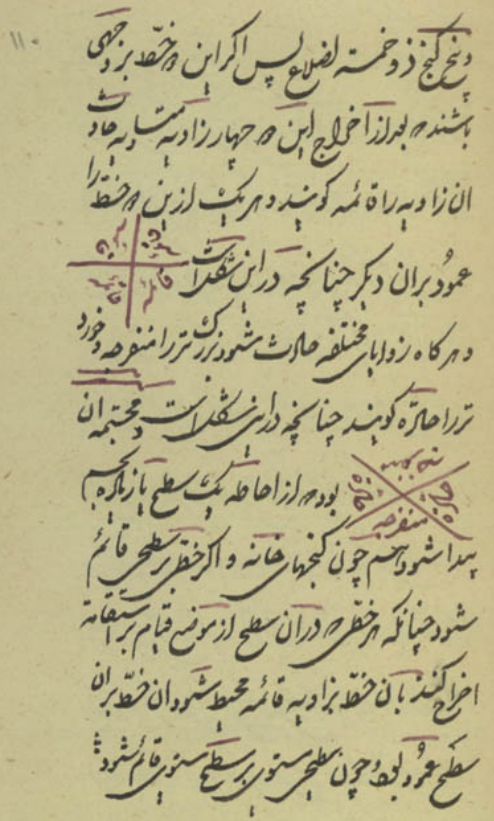 و پنج کنج ذو خمسة اضلاع پس اکر این دو خطّ بر وجهی
باشند که بعد از اخراج این دو چهار زاویه متساویه حادث
ان زاویه را قائمه کویند و هر یک ازین دو خطّ را
عمود بران دیکر چنانچه در این شکلست
قائمه قائمه
قائمه قائمه
و هر کاه زوایای مختلفه حادث شود بزرک تر را منفرجه و خورد
تر را حادّه کویند چنانچه در این شکلست و مجتمه ان
منفرجه
حاده
منفرجه
بود که از احاطه یک سطح یا زیاده بجسم
پیدا شود هم چون کنجهای خانه و اکر خطّی بر سطحی قائم
شود چنانکه هر خطّی که در ان سطح از موضع قیام بر استقامة
اخراج کنند با ان خطّ بزاویه قائمه محیط شود ان خطّ بران
سطح عمود بود و چون سطحی مستوی بر سطح مستوی قائم شود